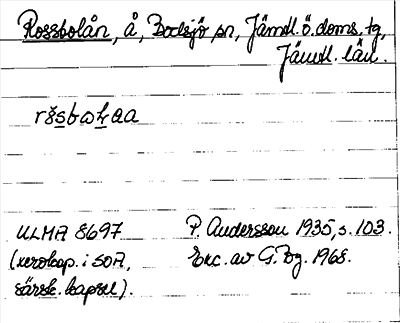 Rossbolån, å, Bodsjö sn, Jämtl. ö. doms. tg,
Jämtl. län.
ULMA 8697
(xerokop. i SOA,
särsk. kapsel).
P. Andersson 1935, s. 103.
Exc. av G. Bg. 1968.